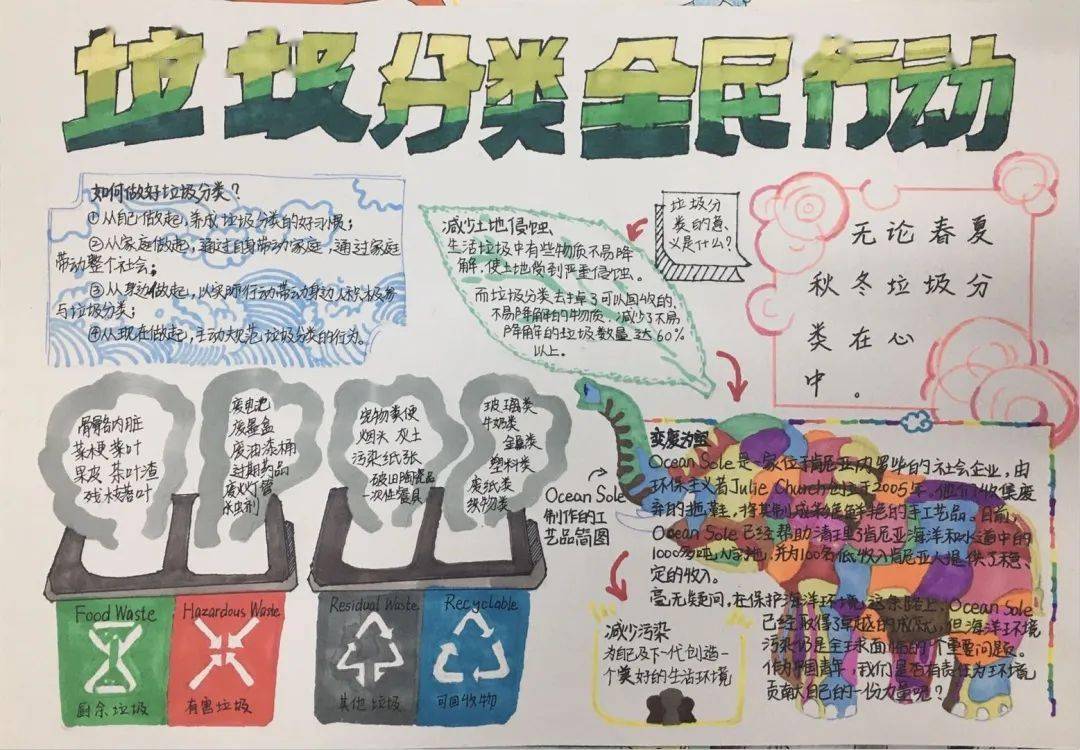 垃圾分类全民行动
如何做好垃圾分类？
①从自己做起，养成垃圾分类的好习惯；
②从家庭做起，通过自身带动家庭，通过家庭
带动整个社会；
③从身边做起，以实际行动带动身边人积极参
与垃圾分类；
④从现在做起，主动规范垃圾分类的行为。
减少土地侵蚀
生活垃圾中有些物质不易降
解，使土地受到严重侵蚀。
而垃圾分类去掉了可以回收的、
不易降解的物质，减少了不易
降解的垃圾数量达60%
以上。
垃圾分
类的意
义是什么？
无论春夏
秋冬垃圾分
类在心
中。
骨骼内脏
菜梗菜叶
果皮 茶叶渣
残枝落叶
废电池
废墨盒
废油漆桶
过期药品
废灯管
杀虫剂
宠物粪便
烟头 灰土
污染纸张
破旧陶瓷品
一次性餐具
玻璃类
牛奶类
金属类
塑料类
废纸类
织物类
Food Waste
厨余垃圾
Hazardous Waste
有害垃圾
Residual Waste
其他垃圾
Recyclable
可回收物
Ocean Sole
制作的工
艺品简图
减少污染
为自己及下一代创造一
个美好的生活环境
变废为宝
Ocean Sole是一家位于肯尼亚内罗毕的社会企业，由
环保主义者Julie Church创立于2005年。他们收集废
弃的拖鞋，将其制成色彩鲜艳的手工艺品。目前，
Ocean Sole已经帮助清理了肯尼亚海洋和水道中的
1000多吨人字拖，并为100名低收入肯尼亚人提供了稳
定的收入。
毫无疑问，在保护海洋环境这条路上，Ocean Sole
已经取得了卓越的成就，但海洋环境
污染仍是全球面临的一个重要问题。
作为中国青年，我们是否有责任为环境
贡献自己的一份力量呢？